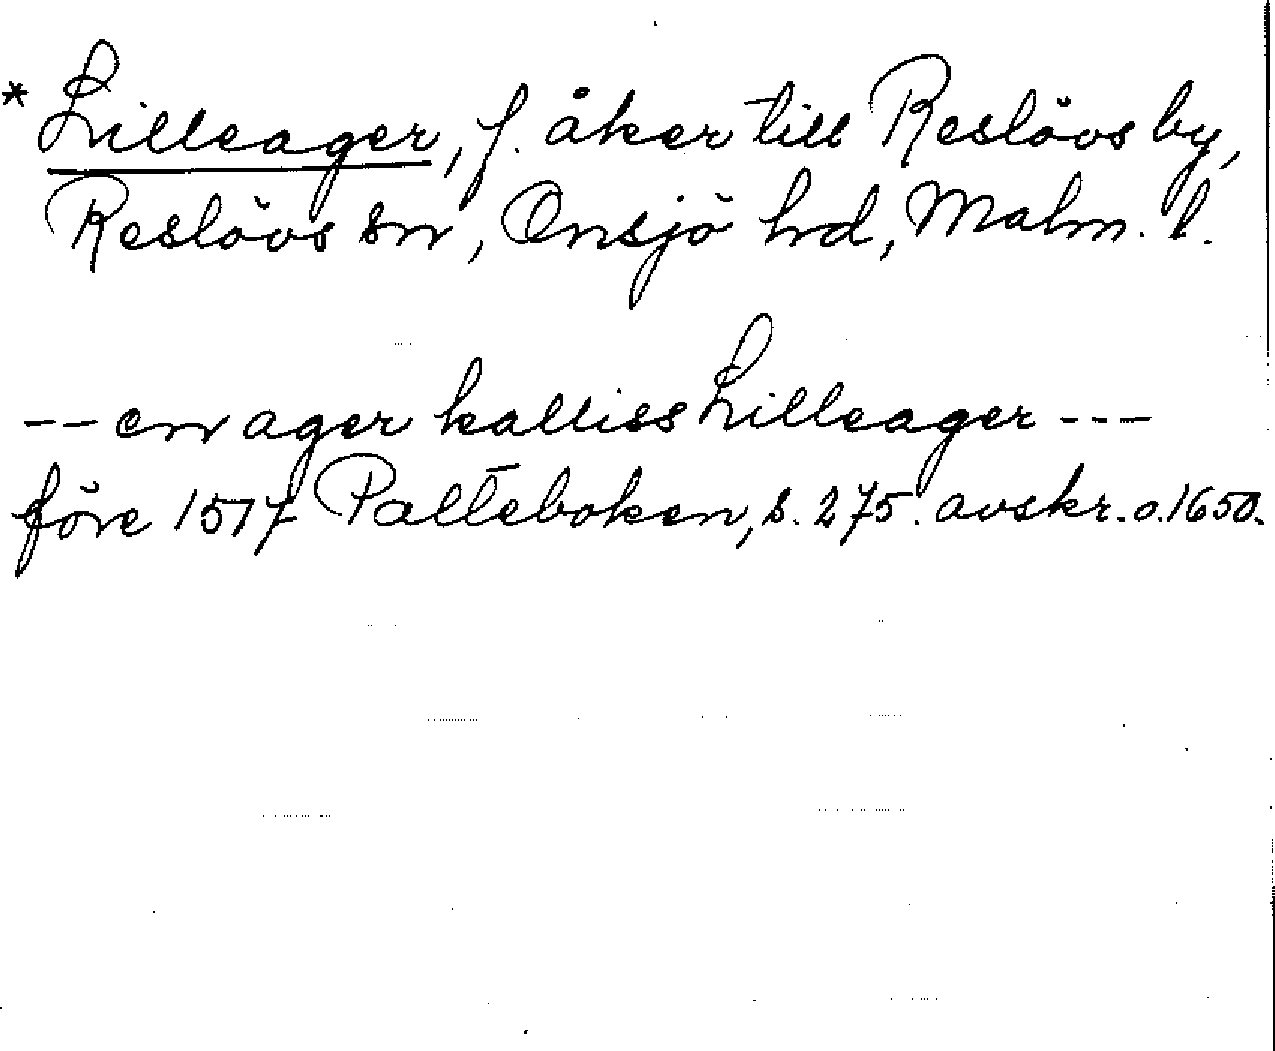 * Lilleager, f. åker till Reslövs by,
Reslövs sn, Onsjö hrd, Malm. l.
-- en ager kalliss Lilleager ---
före 1517 Palteboken, s. 275. avskr. o. 1650.